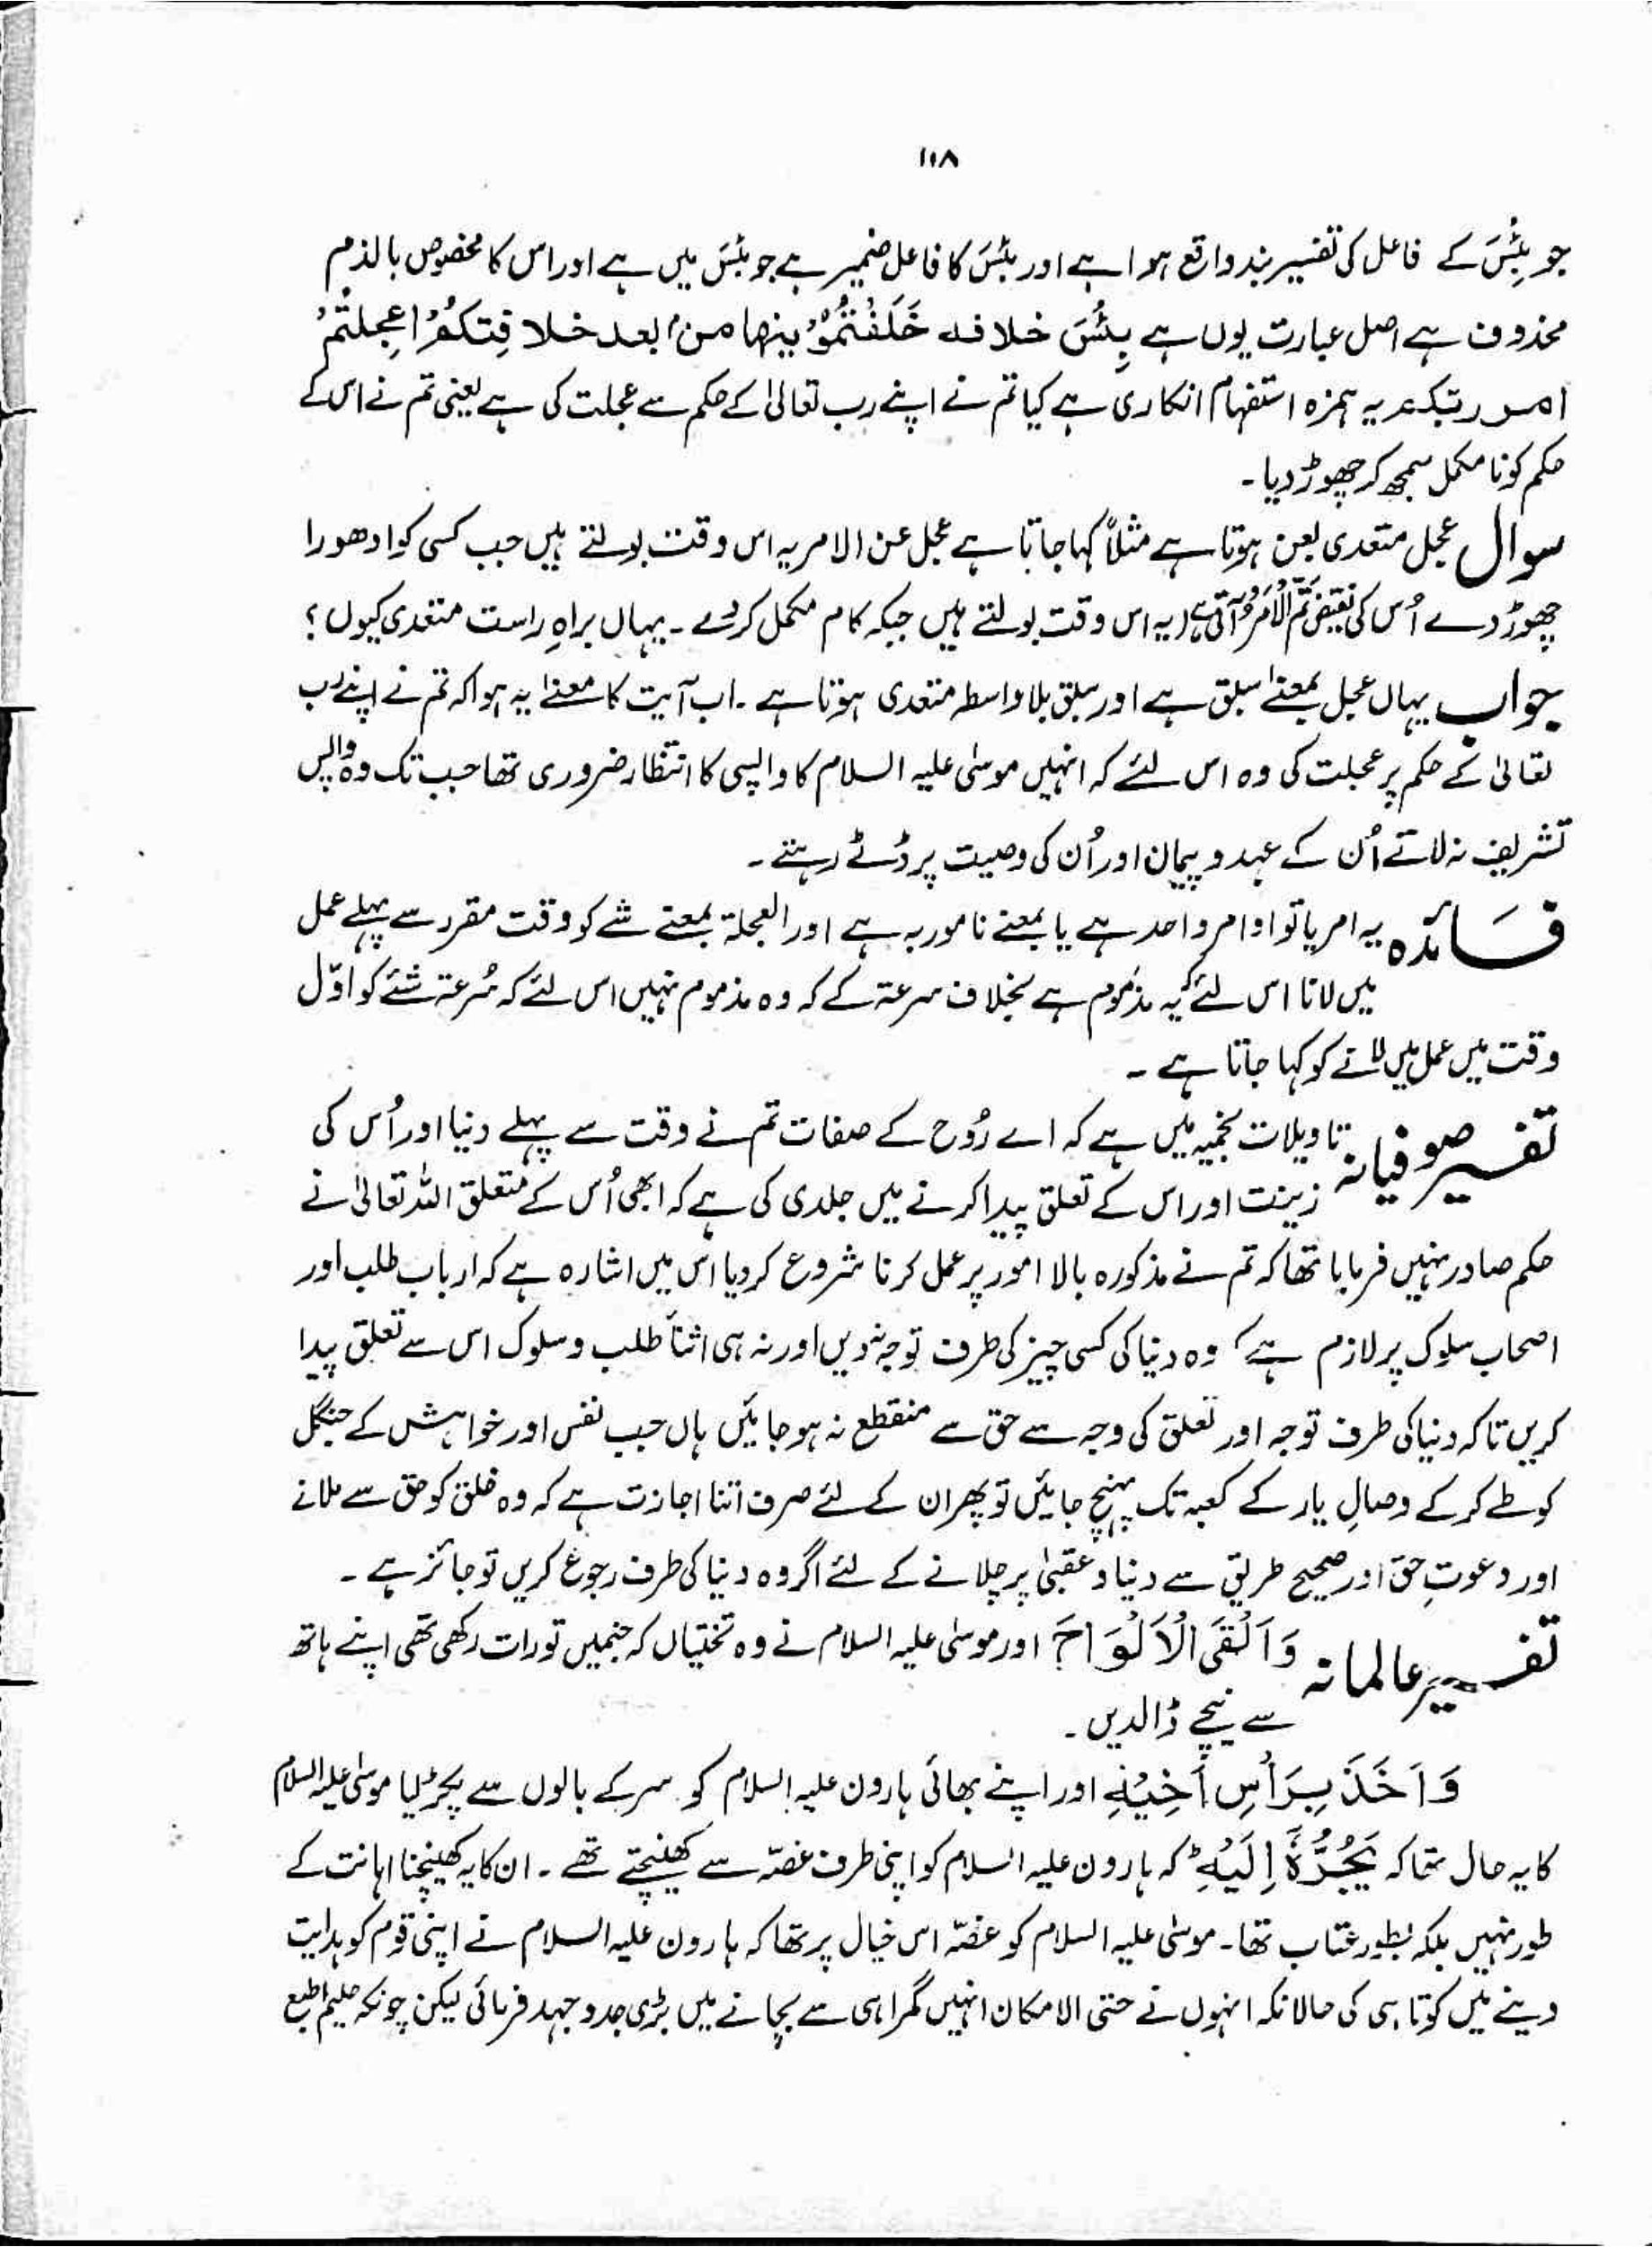 ۱۱۸
جو بِئْسَ کے فاعل کی تفسیر بند واقع ہوا ہے اور بئسَ کا فاعل ضمیر ہے جو بئسَ میں ہے اور اس کا مخصوص بالذم
محذوف ہے اصل عبارت یوں ہے بِئْسَ خلافہ خَلَفْتُمُوْنِیْہا من بعد خلافتِکُمْ اَعجِلْتُمْ
امر ربکم یہ ہمزہ استفہام انکاری ہے کیا تم نے اپنے رب تعالیٰ کے حکم سے عجلت کی ہے یعنی تم نے اس کے
حکم کو نامکمل سمجھ کر چھوڑ دیا ۔
سوال عجل متعدی بعن ہوتا ہے مثلاً کہا جاتا ہے عجل عن الامر یہ اس وقت بولتے ہیں جب کسی کو ادھورا
چھوڑ دے اُس کی نقیض تَمَّ الْاَمْرُ آتی ہے (یہ اس وقت بولتے ہیں جبکہ کام مکمل کردے ۔ یہاں براہِ راست متعدی کیوں ؟
جواب یہاں عجل بمعنے سبق ہے اور سبق بلاواسطہ متعدی ہوتا ہے ۔ اب آیت کا معنےٰ یہ ہوا کہ تم نے اپنے رب
تعالیٰ کے حکم پر عجلت کی وہ اس لئے کہ انہیں موسٰی علیہ السلام کا واپسی کا انتظار ضروری تھا جب تک وہ واپس
تشریف نہ لاتے اُن کے عہد و پیمان اور اُن کی وصیت پر ڈٹے رہتے ۔
فَائدہ یہ امر یا تو اوامر واحد ہے یا بمعنے مامور بہ ہے اور العجلۃ بمعنے شے کو وقت مقرر سے پہلے عمل
میں لانا اس لئے یہ مذموم ہے بخلاف سرعۃ کے کہ وہ مذموم نہیں اس لئے کہ سُرعۃ شئے کو اوّل
وقت میں عمل میں لانے کو کہا جاتا ہے ۔
تفسیر صوفیانہ تاویلات نجمیہ میں ہے کہ اے رُوح کے صفات تم نے وقت سے پہلے دنیا اور اُس کی
زینت اور اس کے تعلق پیدا کرنے میں جلدی کی ہے کہ ابھی اُس کے متعلق اللہ تعالیٰ نے
حکم صادر نہیں فرمایا تھا کہ تم نے مذکورہ بالا امور پر عمل کرنا شروع کردیا اس میں اشارہ ہے کہ ارباب طلب اور
اصحاب سلوک پر لازم ہے کہ وہ دنیا کی کسی چیز کی طرف توجہ نہ دیں اور نہ ہی اثنأ طلب و سلوک اس سے تعلق پیدا
کریں تاکہ دنیا کی طرف توجہ اور تعلق کی وجہ سے حق سے منقطع نہ ہو جائیں ہاں جب نفس اور خواہش کے جنگل
کو طے کرکے وصالِ یار کے کعبہ تک پہنچ جائیں تو پھر ان کے لئے صرف اتنا اجازت ہے کہ وہ خلق کو حق سے ملانے
اور دعوتِ حق اور صحیح طریق سے دنیا و عقبیٰ پر چلانے کے لئے اگر وہ دنیا کی طرف رجوع کریں تو جائز ہے ۔
تفسیر عالمانہ وَاَلْقَی الْاَلْوَاحَ اور موسٰی علیہ السلام نے وہ تختیاں کہ جنمیں تورات رکھی تھی اپنے ہاتھ
سے نیچے ڈالدیں ۔
وَاَخَذَ بِرَأْسِ اَخِیْہِ اور اپنے بھائی ہارون علیہ السلام کو سر کے بالوں سے پکڑ لیا موسٰی علیہ السلام
کا یہ حال تھا کہ یَجُرُّہٗٓ اِلَیْہِ کہ ہارون علیہ السلام کو اپنی طرف غصّہ سے کھینچتے تھے ۔ ان کا یہ کھینچنا اہانت کے
طور نہیں بلکہ بطور عتاب تھا ۔ موسٰی علیہ السلام کو غصّہ اس خیال پر تھا کہ ہارون علیہ السلام نے اپنی قوم کو ہدایت
دینے میں کوتاہی کی حالانکہ انہوں نے حتی الامکان انہیں گمراہی سے بچانے میں بڑی جدوجہد فرمائی لیکن چونکہ حلیم الطبع